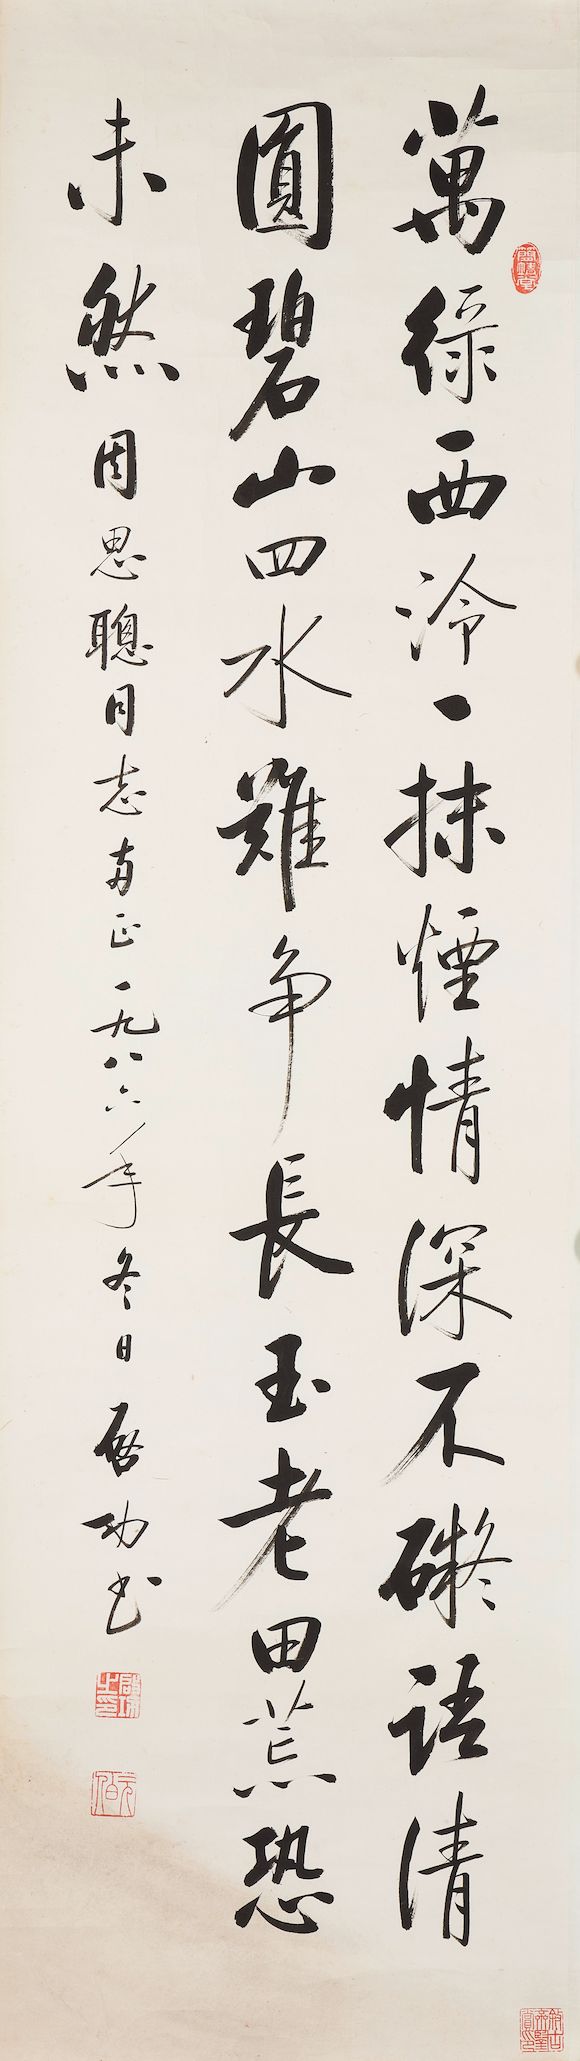 萬綠西泠一抹煙情深不礙語清
圓碧山四水難爭長玉老田荒恐
未然 周思聰同志兩正一九八六年冬日啟功書
啟功之印
元伯